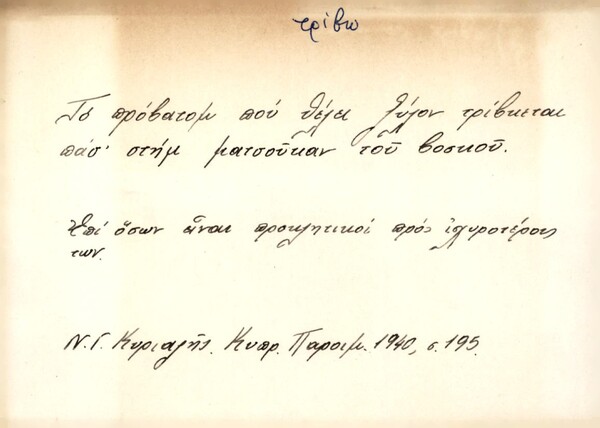 τρίβω
Τό πρόβατομ πού θέλει ξύλον τρίβκεται
πάσ' στήμ ματσούκαν τοῦ βοσκοῦ.
Ἐπί ὅσων εἶναι προκλητικοί πρός ἰσχυροτέρους
των.
Ν. Γ. Κυριαζῆς. Κυπρ. Παροιμ. 1940, σ. 195.